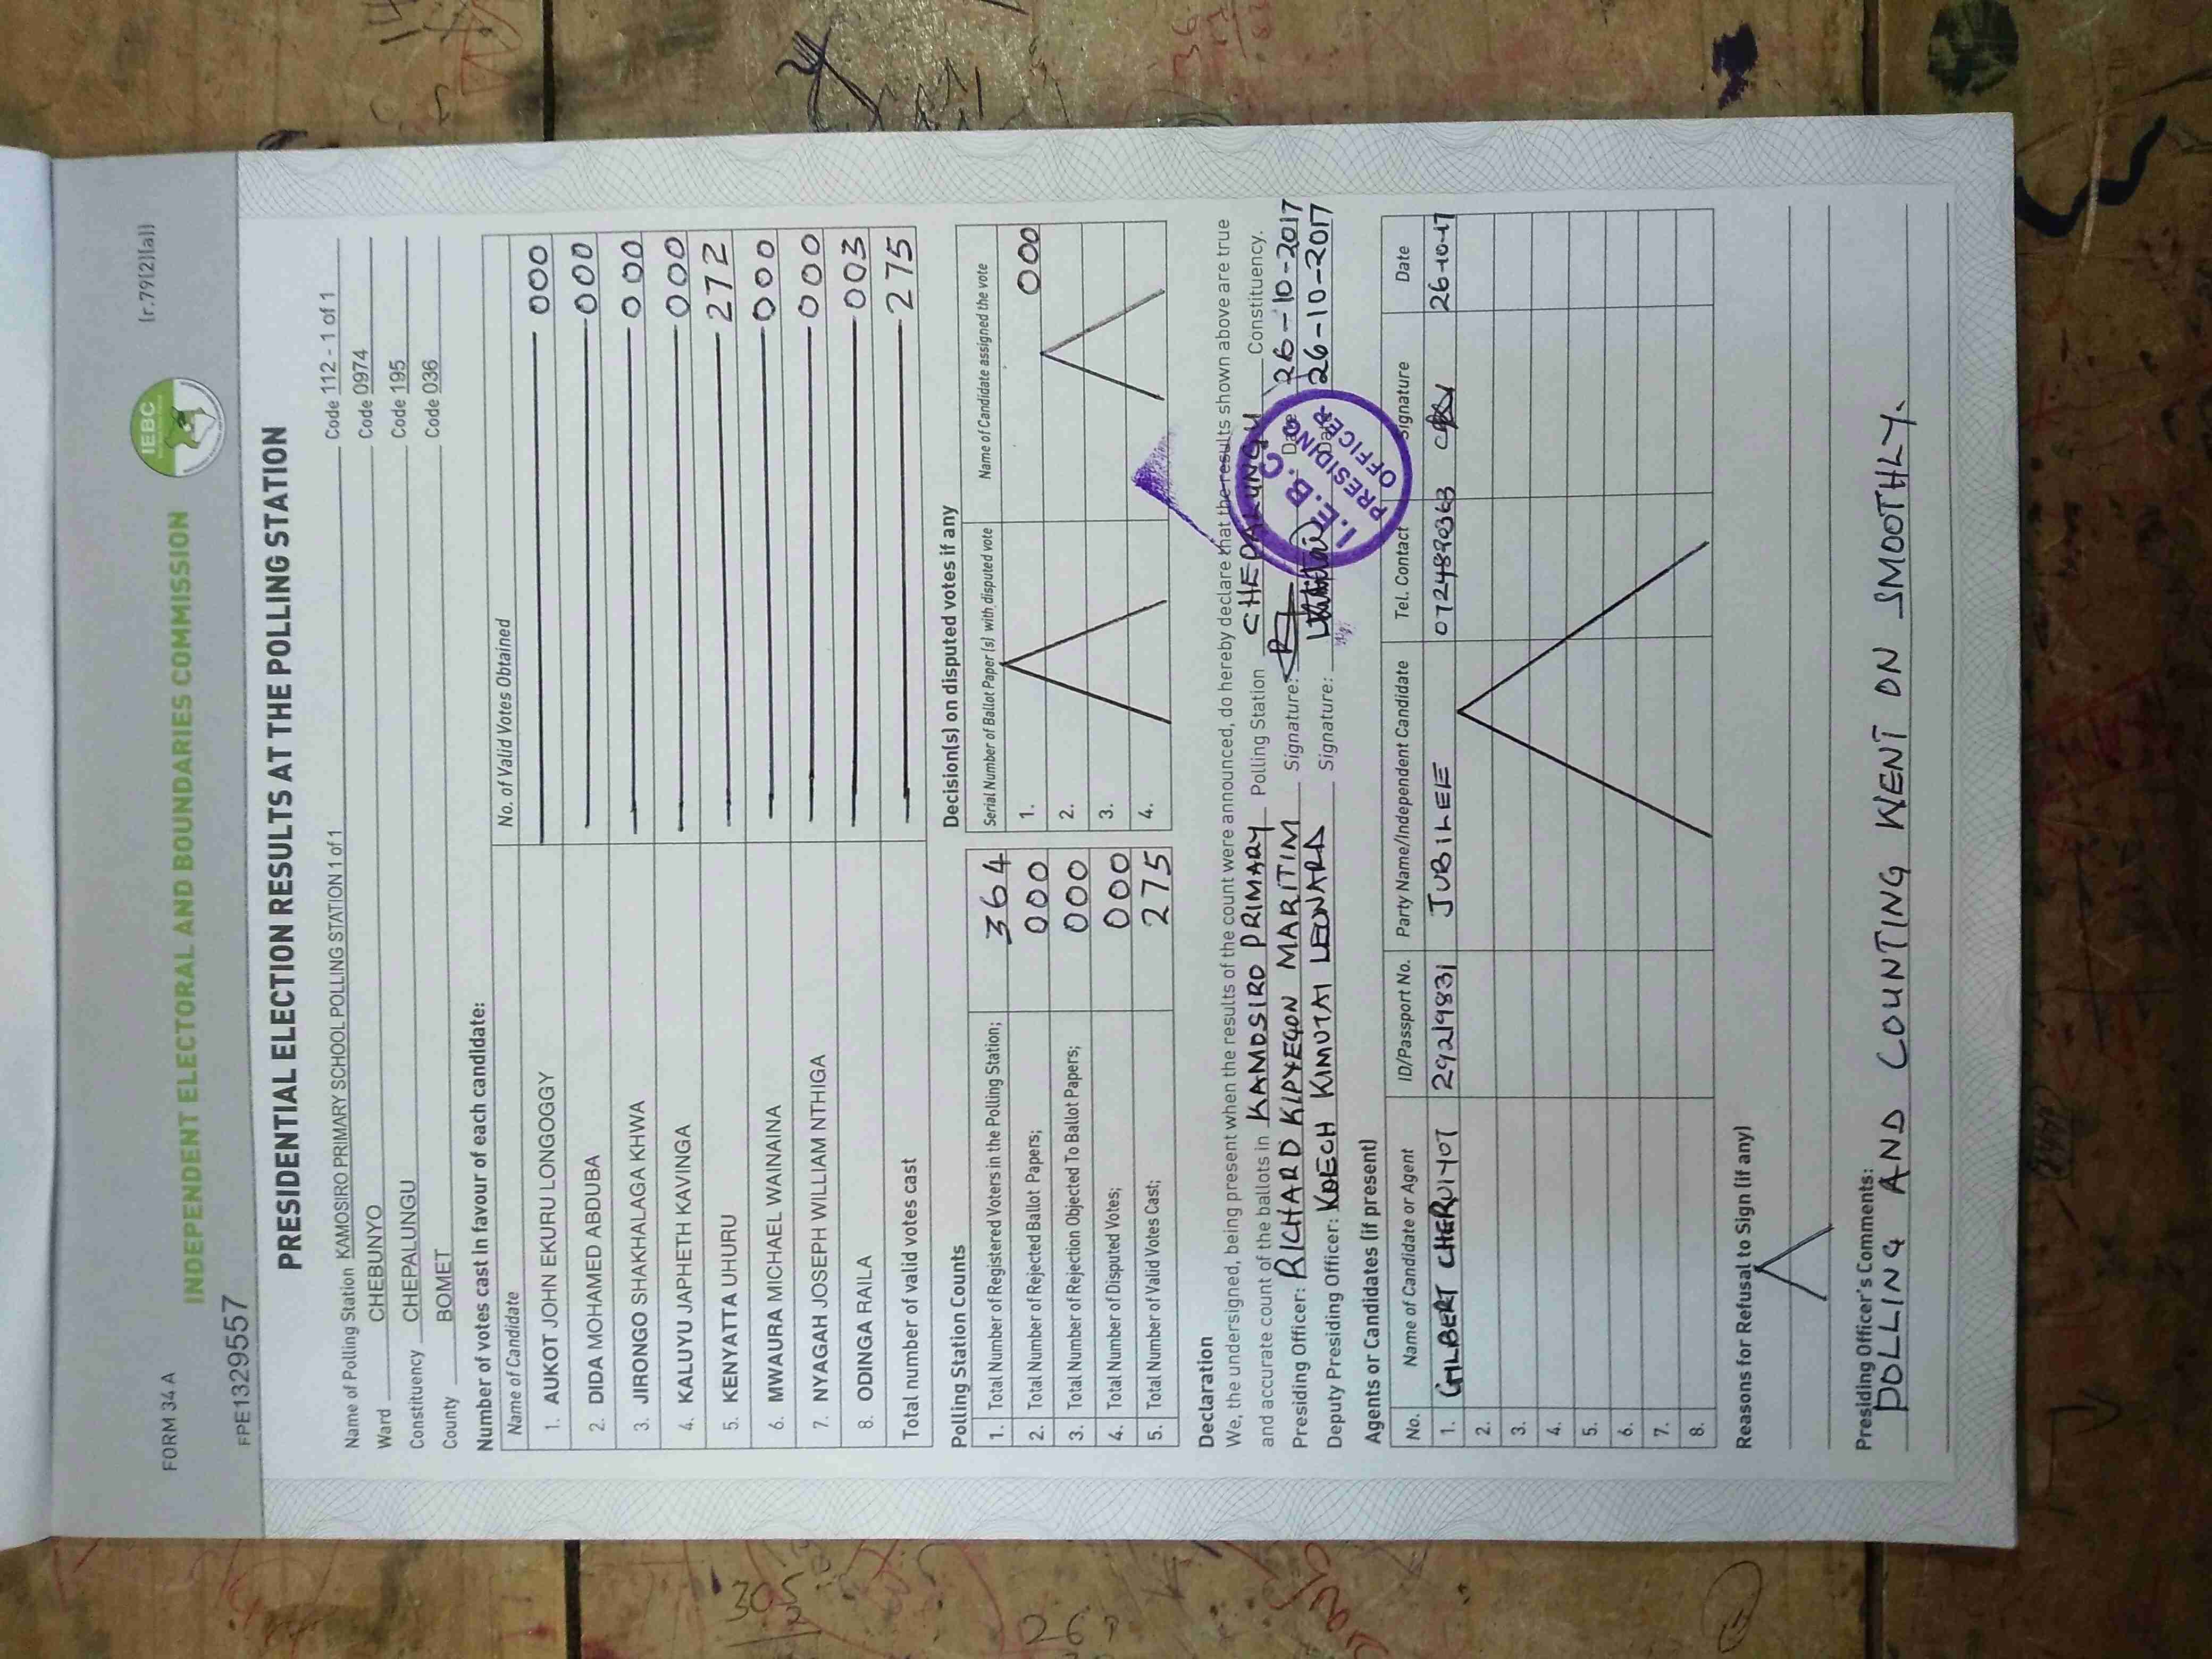 FORM 34 A
(r.79(2)(a))
INDEPENDENT ELECTORAL AND BOUNDARIES COMMISSION
IEBC
FPE1329557
PRESIDENTIAL ELECTION RESULTS AT THE POLLING STATION
Name of Polling Station KAMOSIRO PRIMARY SCHOOL POLLING STATION 1 of 1 Code 112 - 1 of 1
Ward CHEBUNYO Code 0974
Constituency CHEPALUNGU Code 195
County BOMET Code 036
Number of votes cast in favour of each candidate:
Name of Candidate No. of Valid Votes Obtained
1. AUKOT JOHN EKURU LONGOGGY 000
2. DIDA MOHAMED ABDUBA 000
3. JIRONGO SHAKHALAGA KHWA 000
4. KALUYU JAPHETH KAVINGA 000
5. KENYATTA UHURU 272
6. MWAURA MICHAEL WAINAINA 000
7. NYAGAH JOSEPH WILLIAM NTHIGA 000
8. ODINGA RAILA 003
Total number of valid votes cast 275
Polling Station Counts
1. Total Number of Registered Voters in the Polling Station; 364
2. Total Number of Rejected Ballot Papers; 000
3. Total Number of Rejection Objected To Ballot Papers; 000
4. Total Number of Disputed Votes; 000
5. Total Number of Valid Votes Cast; 275
Decision(s) on disputed votes if any
Serial Number of Ballot Paper (s) with disputed vote Name of Candidate assigned the vote
1. 000
2.
3.
4.
Declaration
We, the undersigned, being present when the results of the count were announced, do hereby declare that the results shown above are true
and accurate count of the ballots in KAMOSIRO PRIMARY Polling Station CHEPALUNGU Constituency.
Presiding Officer: RICHARD KIPYEGON MARITIM Signature: Date 26-10-2017
Deputy Presiding Officer: KOECH KIMUTAI LEONARD Signature: Date 26-10-2017
I.E.B.C
PRESIDING
OFFICER
Agents or Candidates (if present)
No. Name of Candidate or Agent ID/Passport No. Party Name/Independent Candidate Tel. Contact Signature Date
1. GILBERT CHERUIYOT 29219831 JUBILEE 0724890363 26-10-17
2.
3.
4.
5.
6.
7.
8.
Reasons for Refusal to Sign (if any)
Presiding Officer's Comments:
POLLING AND COUNTING WENT ON SMOOTHLY.